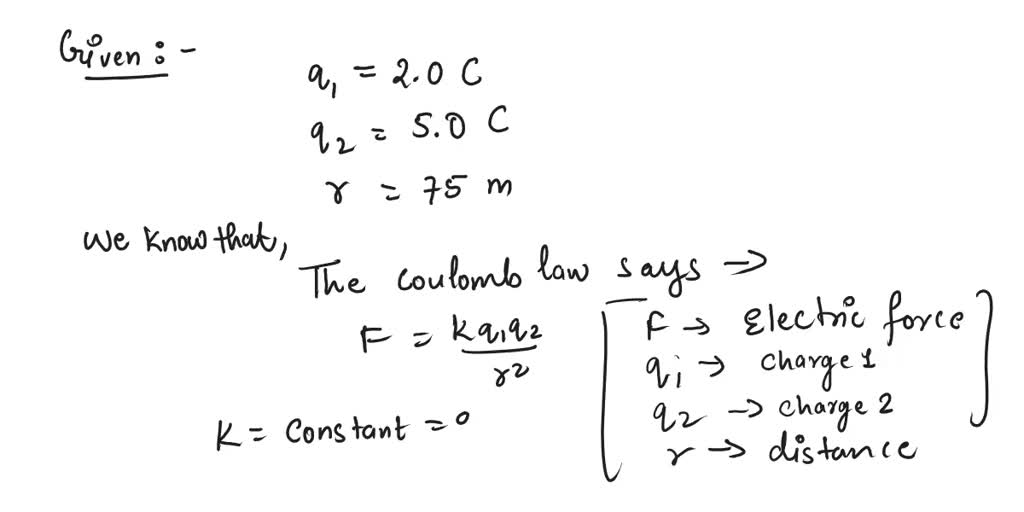 Given :-
q₁ = 2.0 C
q₂ = 5.0 C
r = 75 m
We know that,
The coulomb law says →
F = kq₁q₂/r²
F → Electric force
q₁ → charge 1
q₂ → charge 2
r → distance
K = Constant = 0